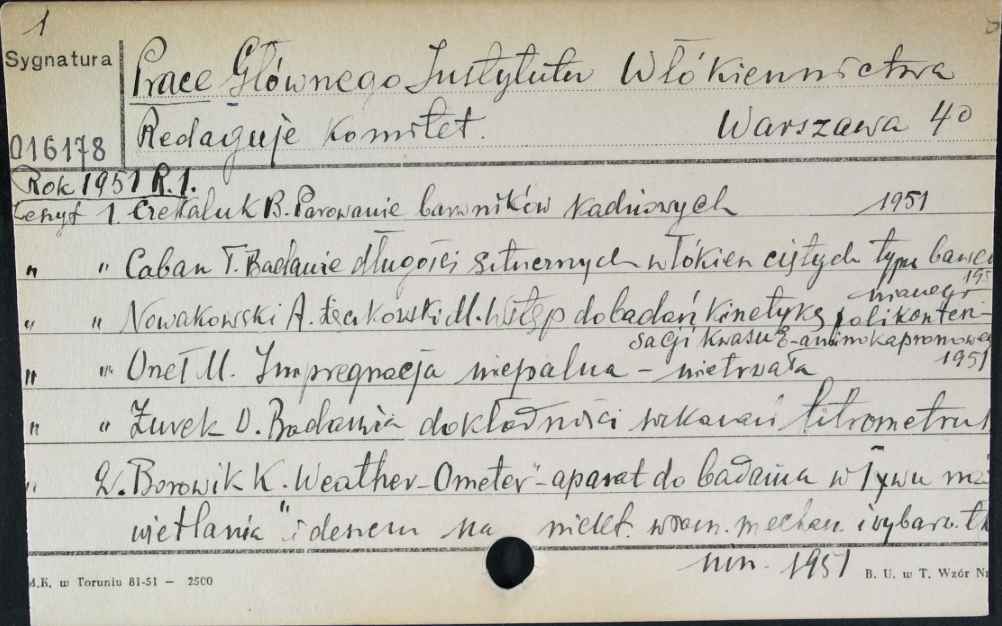 1
Sygnatura
Prace Głównego Instytutu Włókiennictwa
Redaguje Komitet. Warszawa 40
016178
Rok 1951 R.1.
Zeszyt 1. Czekaluk B. Parowanie barwników kadziowych 1951
" " Caban T. Badanie długości sztucznych włókien ciętych typu baweł
nianego. 195
" " Nowakowski A. Łęczkowski M. Wstęp do badań kinetyką polikonden-
sacji kwasu ε-aminokapronoweg
" " Oneł M. Impregnacja niepalna - nietrwała 1951
" " Żurek D. Badania dokładności wskazań
" 2. Borowik K. "Weather-Ometer" - aparat do badania wpływu na
wietlania" i deszczu na niekt. mechan. i wybarw. tk
nin. 1951
.K. w Toruniu 81-51 — 2500
B. U. w T. Wzór N